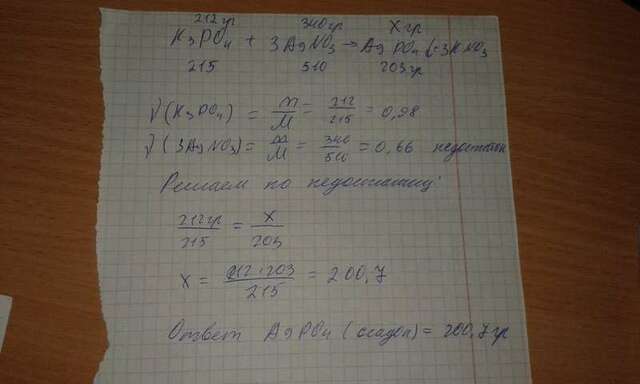 212гр 340гр Xгр
K3PO4 + 3AgNO3 → Ag PO4 + 3KNO3
215 510 203гр
ν(K3PO4) = m/M = 212/215 = 0,98
ν(3AgNO3) = m/M = 340/510 = 0,66 недостаток
Решаем по недостатку:
212гр/215 = X/203
X = 212·203/215 = 200,7
Ответ AgPO4 (осадок) = 200,7гр